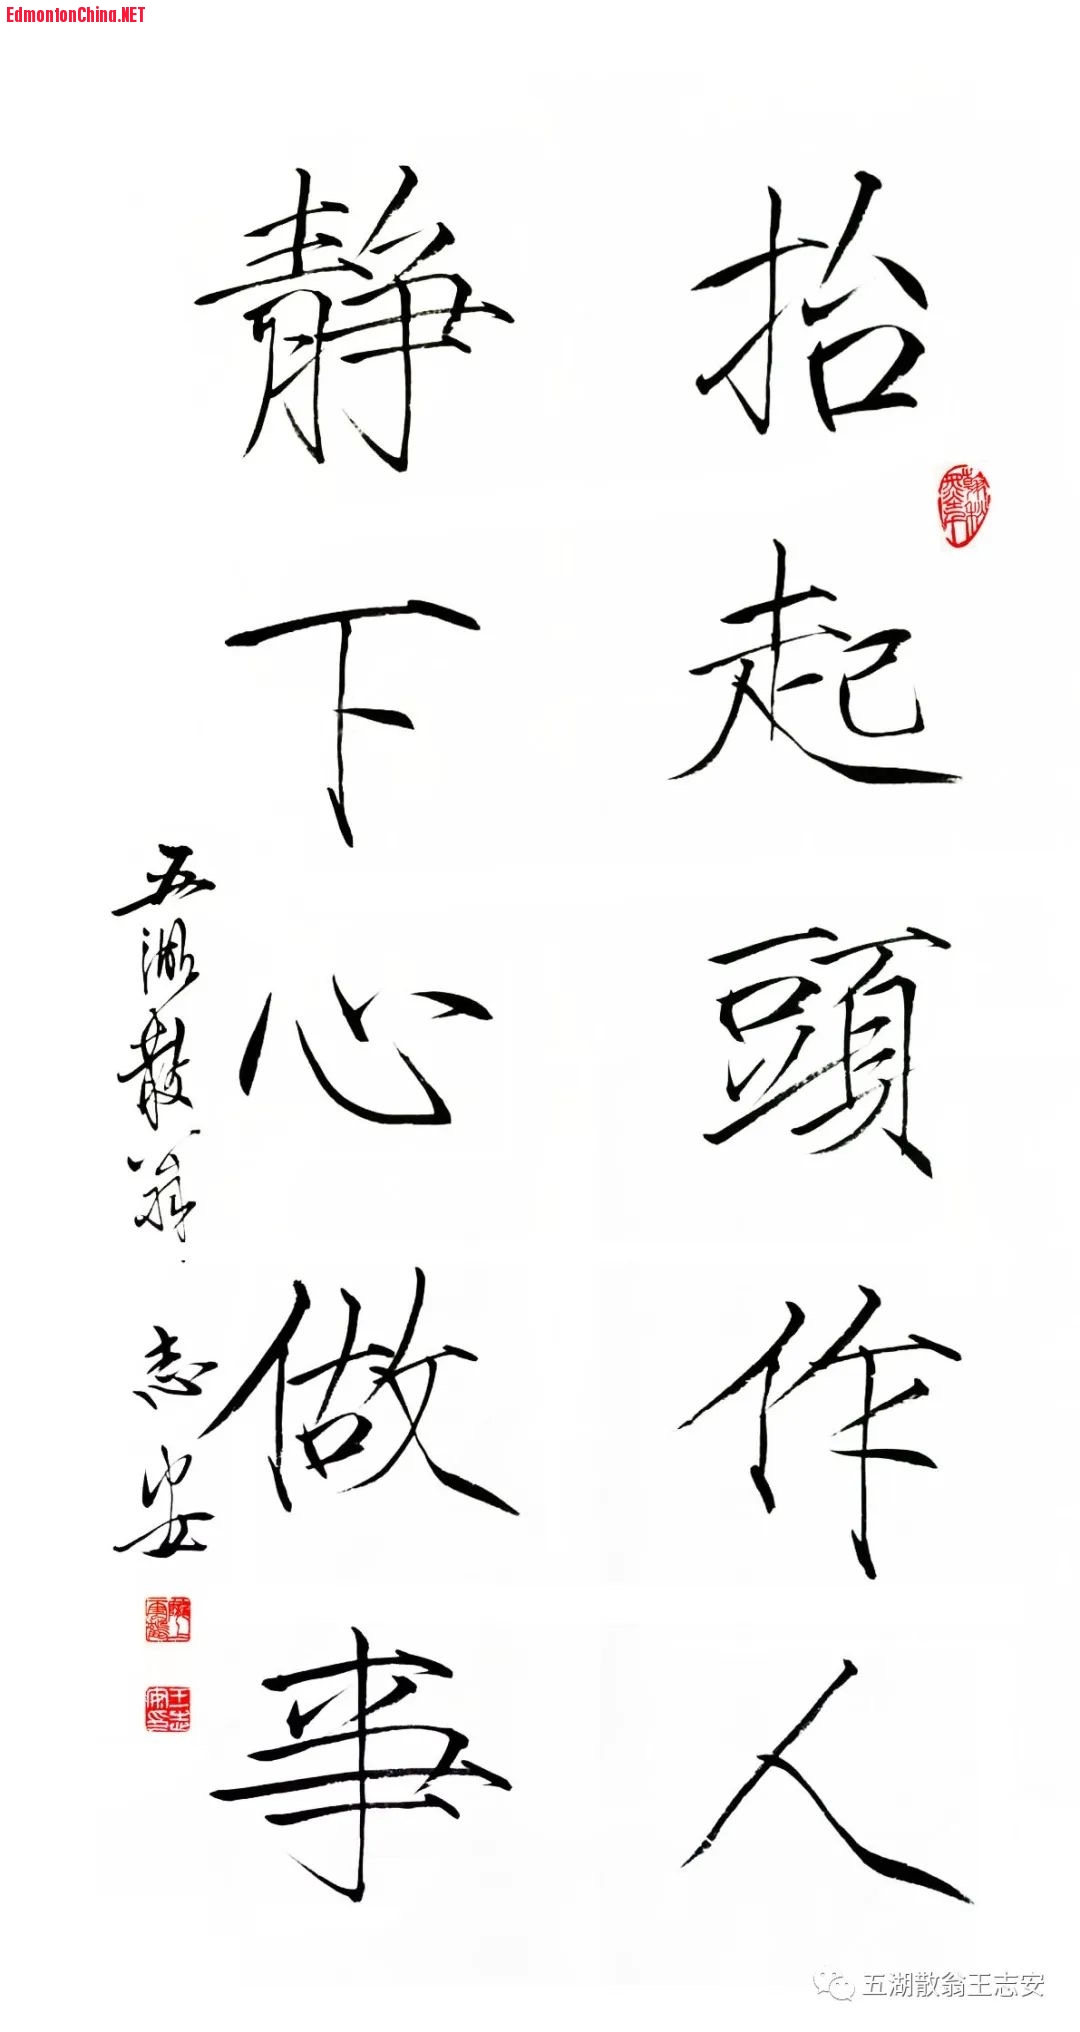 EdmontonChina.NET
抬起頭作人
静下心做事
五湖散翁
志安
王志安印
五湖散翁王志安